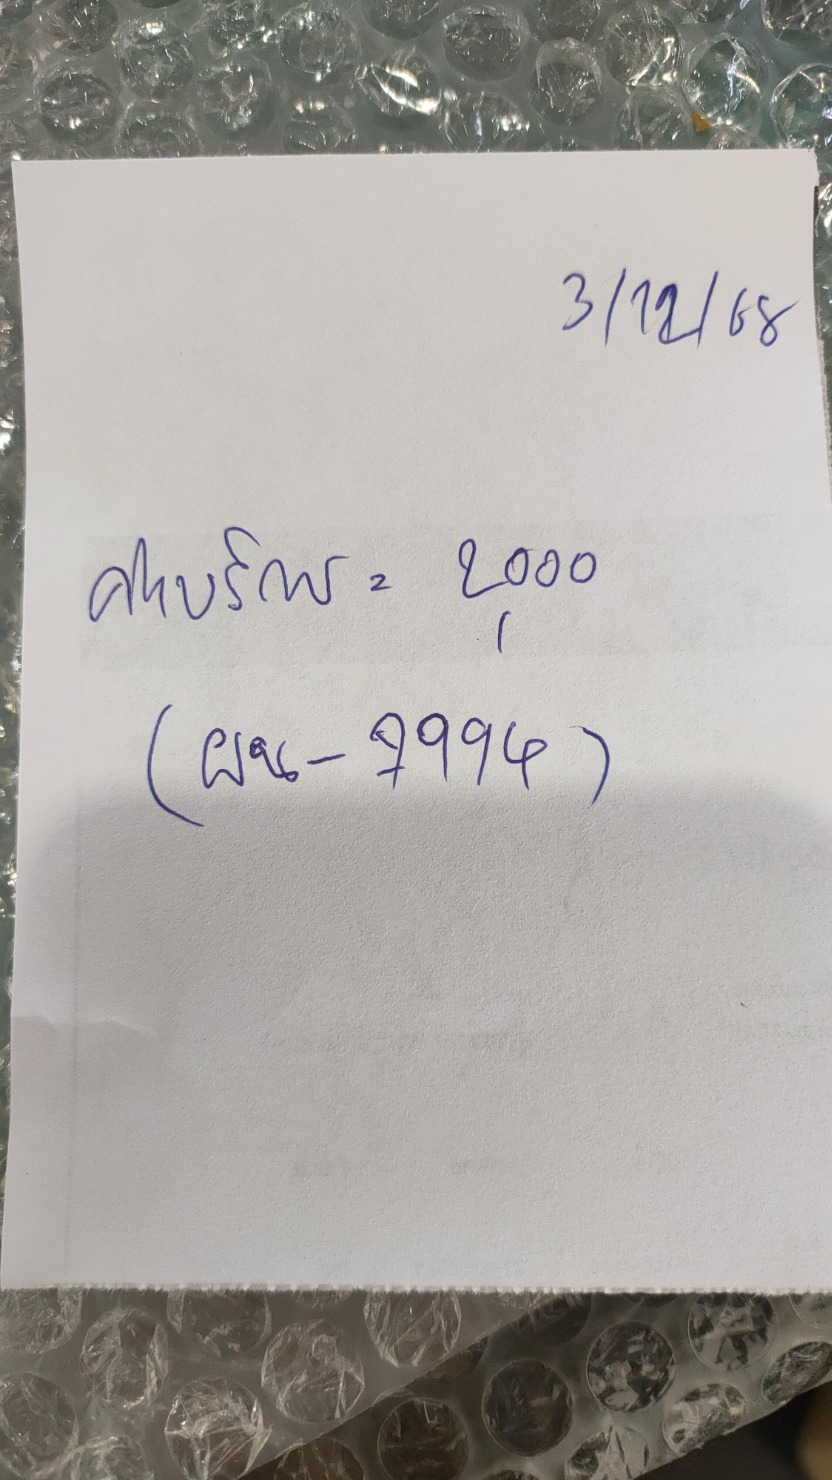 3/12/68
ค่าบริการ = 2,000
(ผน-7994)